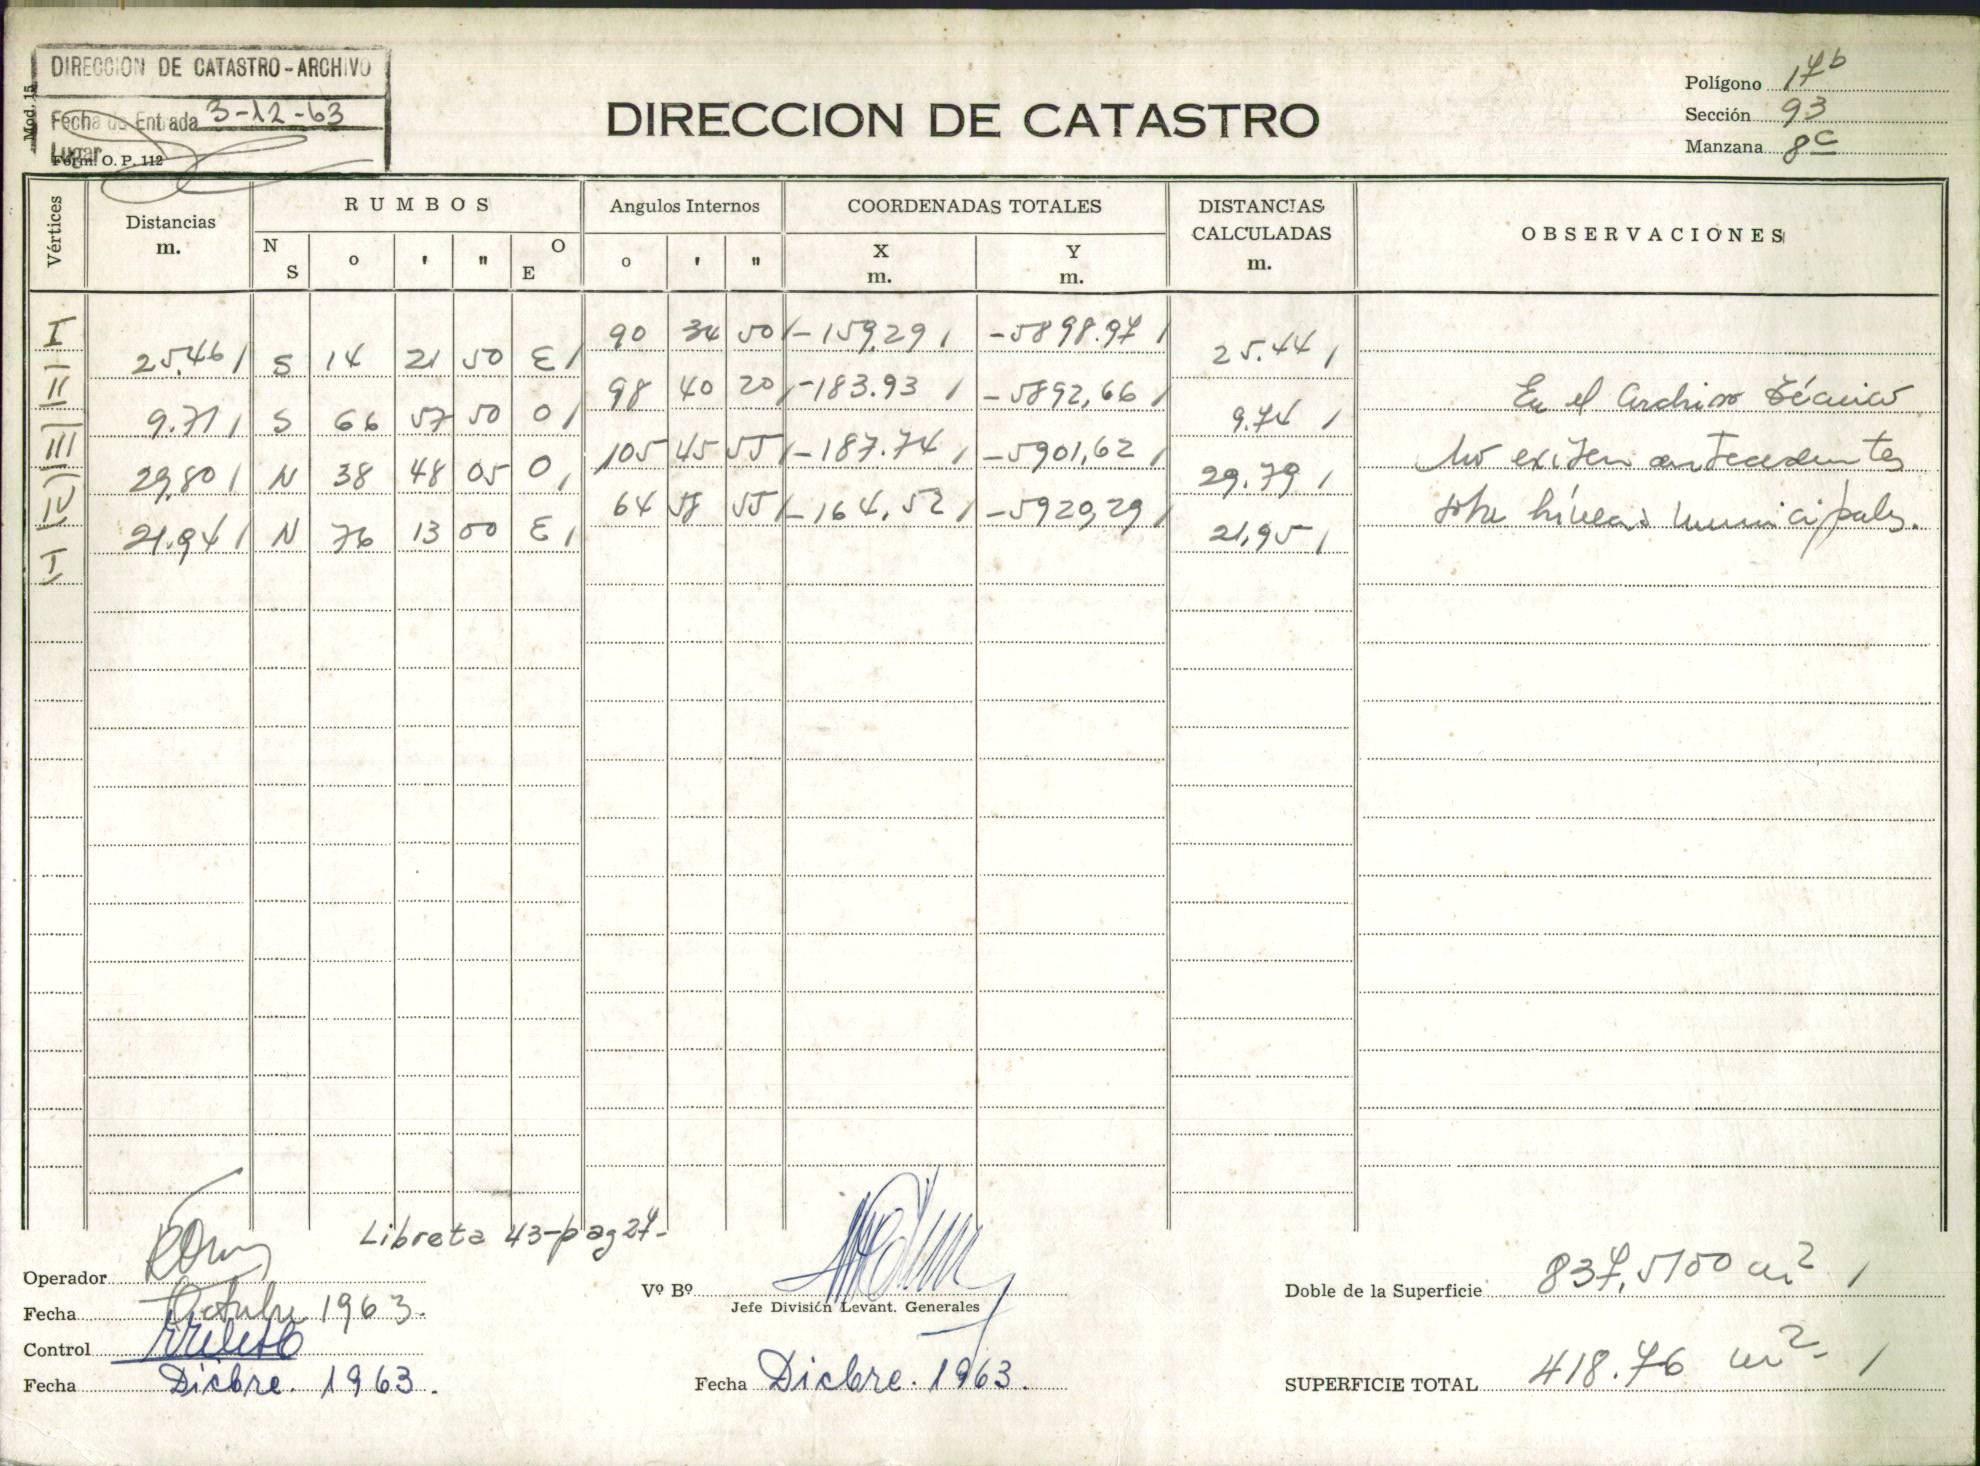 DIRECCION DE CATASTRO-ARCHIVO
Fecha de Entrada 3-12-63
Lugar
Mod. 15
Form. O. P. 112
DIRECCION DE CATASTRO
Polígono 17b
Sección 93
Manzana 8c
Vértices
Distancias
m.
RUMBOS
N S ° ' " O E
Angulos Internos
° ' "
COORDENADAS TOTALES
X
m.
Y
m.
DISTANCIAS
CALCULADAS
m.
OBSERVACIONES
I 90 34 50 -159,29 -5898.97
25,46 S 14 21 50 E 25.44
II 98 40 20 -183.93 -5892,66
9.71 S 66 57 50 O 9.74
III 105 45 55 -187.74 -5901,62
29,80 N 38 48 05 O 29.79
IV 64 58 55 -164,52 -5920,29
21.94 N 76 13 00 E 21,95
I
En el Archivo Técnico
No existen antecedentes
sobre líneas municipales.
Libreta 43-pag 27-
Operador
Fecha Octubre 1963.
Control
Fecha Dicbre. 1963.
Vº Bº
Jefe División Levant. Generales
Fecha Dicbre. 1963.
Doble de la Superficie 837,5100 m2
SUPERFICIE TOTAL 418.76 m2-